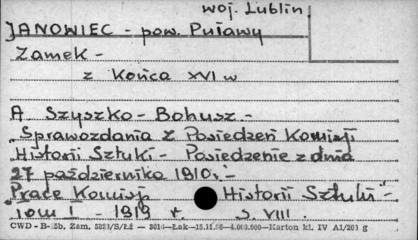 woj. Lublin
JANOWIEC - pow. Puławy
Zamek -
z Końca XVI w
A Szyszko - Bohusz -
„Sprawozdania z Posiedzeń Komisji
„Historii Sztuki - Posiedzenie z dnia
27 października 1910r. -
„Prace Komisji Historii Sztuki" -
"Tom I - 1919 r. s. VIII.
CWD - B- Zam. 5821/S/ŁŻ - Łak—15.11.56—4.000.000—Karton kl. IV A1/200 g